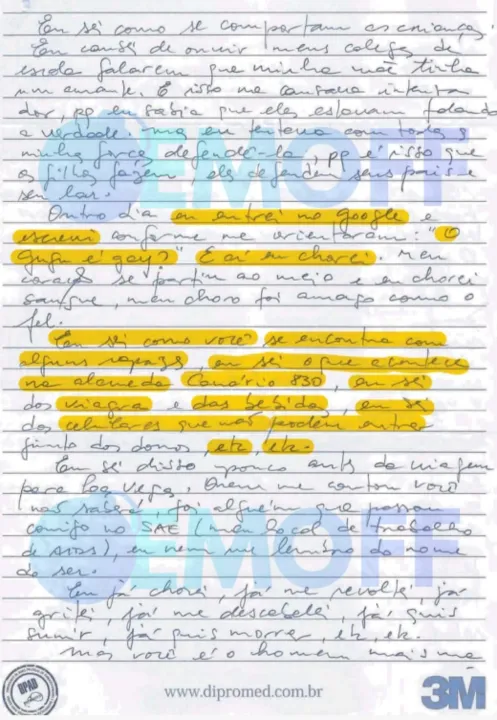 Eu sei como se comportam as crianças.
Eu cansei de ouvir meus colegas de
escola falarem que minha mãe tinha
um amante. E isso me causava intensa
dor, pq eu sabia que eles estavam falando
a verdade, mas eu tentava com todas
minhas forças defendê-la, pq é isso que
os filhos fazem, eles defendem seus pais e
seu lar.
Outro dia eu entrei no google e
escrevi conforme me orientaram: "O
Gugu é gay?" E aí eu chorei. Meu
coração se partiu ao meio e eu chorei
sangue, meu choro foi amargo como o
fel.
Eu sei como você se encontra com
alguns rapazes, eu sei o que acontece
na alameda Canário 830, eu sei
dos viagra e das bebidas, eu sei
dos celulares que não podem entrar
junto dos donos, etc, etc.
Eu sei disso pouco antes da viagem
para Las Vegas. Quem me contou você
não saberá, foi alguém que passou
comigo no SAE (meu local de trabalho
de anos), eu nem me lembro do nome
do ser.
Eu já chorei, já me revoltei, já
gritei, já me descabelei, já quis
sumir, já quis morrer, etc, etc.
Mas você é o homem mais ma
EMOFF
EMOFF
DIPAD
www.dipromed.com.br
3M